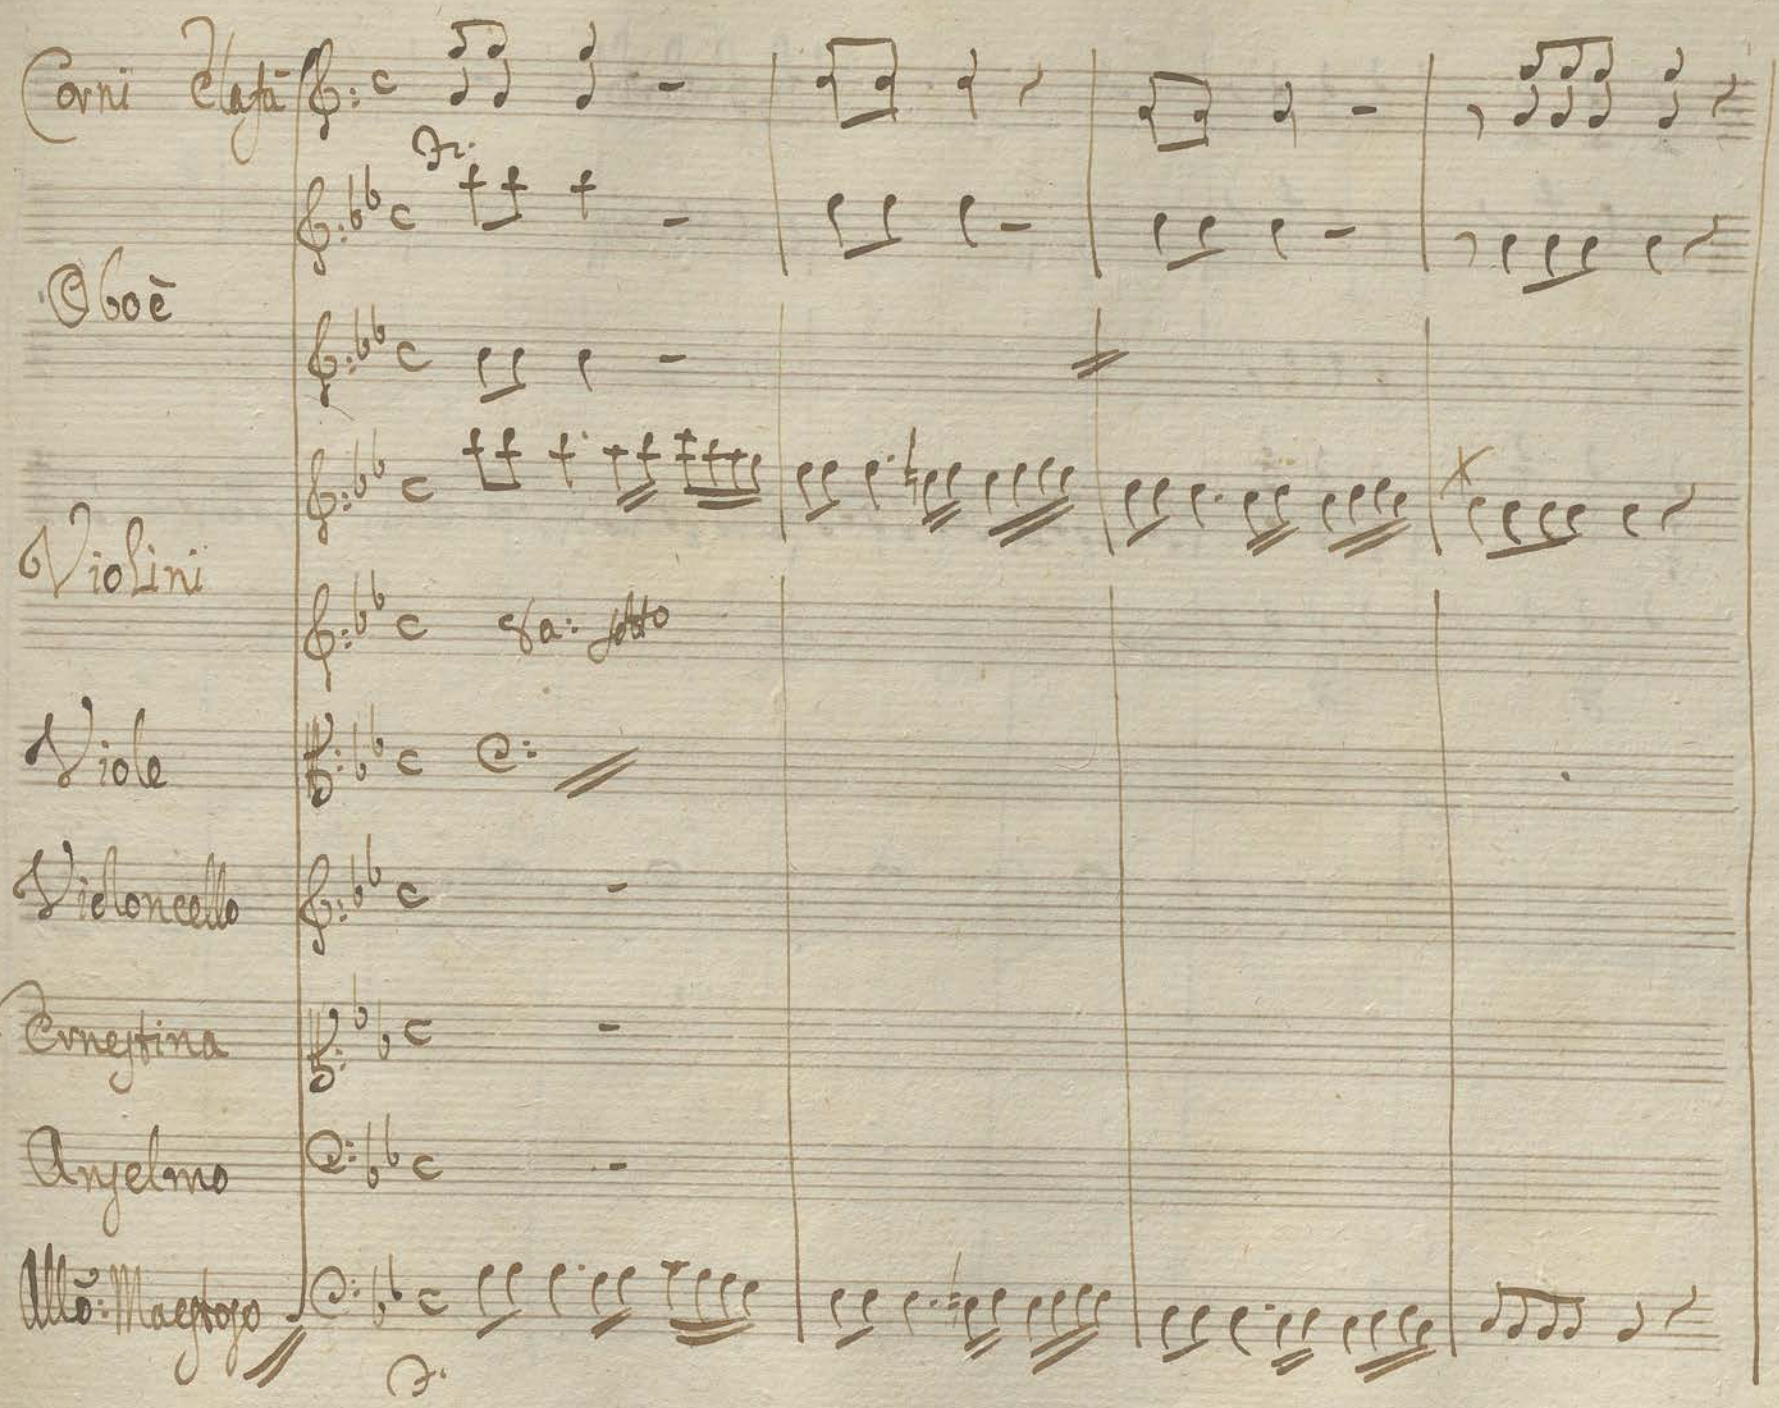 Corni Elafà
Fr.
Oboè
Violini
8a: sotto
Viole
Violoncello
Ernestina
Anselmo
Allo: Maestoso
F.